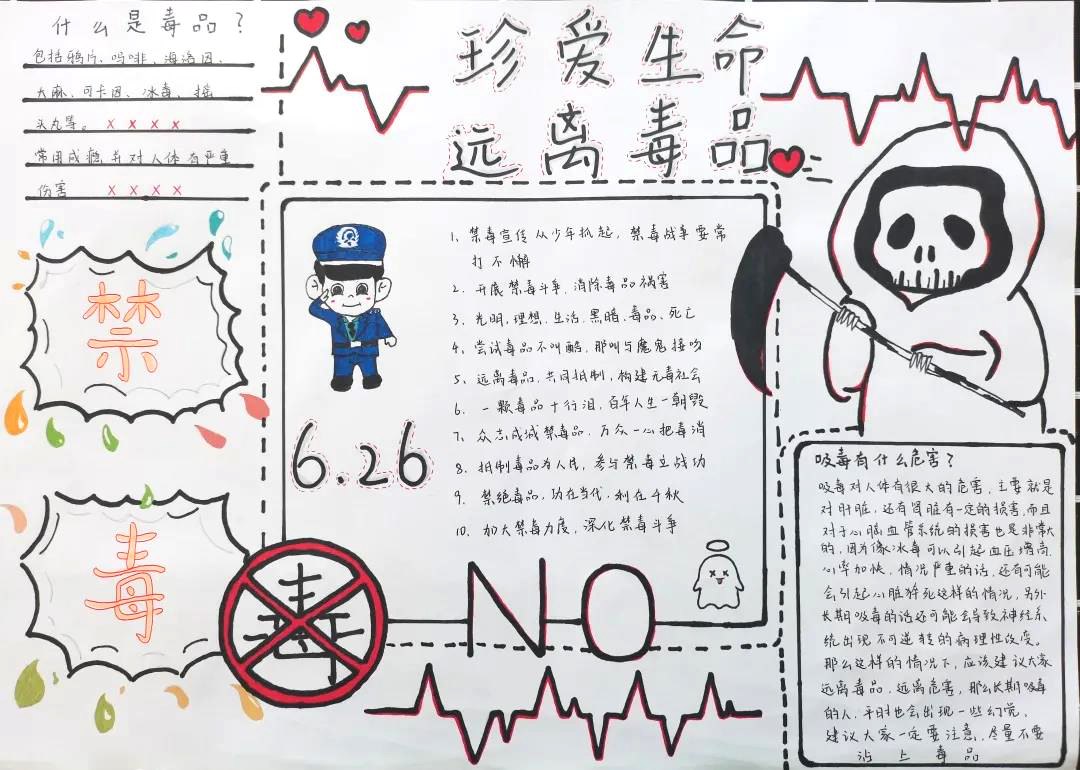 什么是毒品?
包括鸦片、吗啡、海洛因、
大麻、可卡因、冰毒、摇
头丸等。 x x x x
常用成瘾并对人体有严重
伤害 x x x x
珍爱生命
远离毒品
禁
毒
6.26
1、禁毒宣传从少年抓起,禁毒战争要常
打不懈
2、开展禁毒斗争,消除毒品祸害
3、光明、理想、生活、黑暗、毒品、死亡
4、尝试毒品不叫酷,那叫与魔鬼接吻
5、远离毒品、共同抵制,构建无毒社会
6、一颗毒品十行泪,百年人生一朝毁
7、众志成城禁毒品,万众一心把毒消
8、抵制毒品为人民,参与禁毒立战功
9、禁绝毒品,功在当代,利在千秋
10、加大禁毒力度,深化禁毒斗争
毒
NO
吸毒有什么危害?
吸毒对人体有很大的危害,主要就是
对肝脏,还有肾脏有一定的损害,而且
对于心脑血管系统的损害也是非常大
的,因为像冰毒可以引起血压增高,
心率加快,情况严重的话,还有可能
会引起心脏猝死这样的情况,另外
长期吸毒的话还可能会导致神经系
统出现不可逆转的病理性改变。
那么这样的情况下,应该建议大家
远离毒品,远离危害,那么长期吸毒
的人,平时也会出现一些幻觉,
建议大家一定要注意,尽量不要
沾上毒品